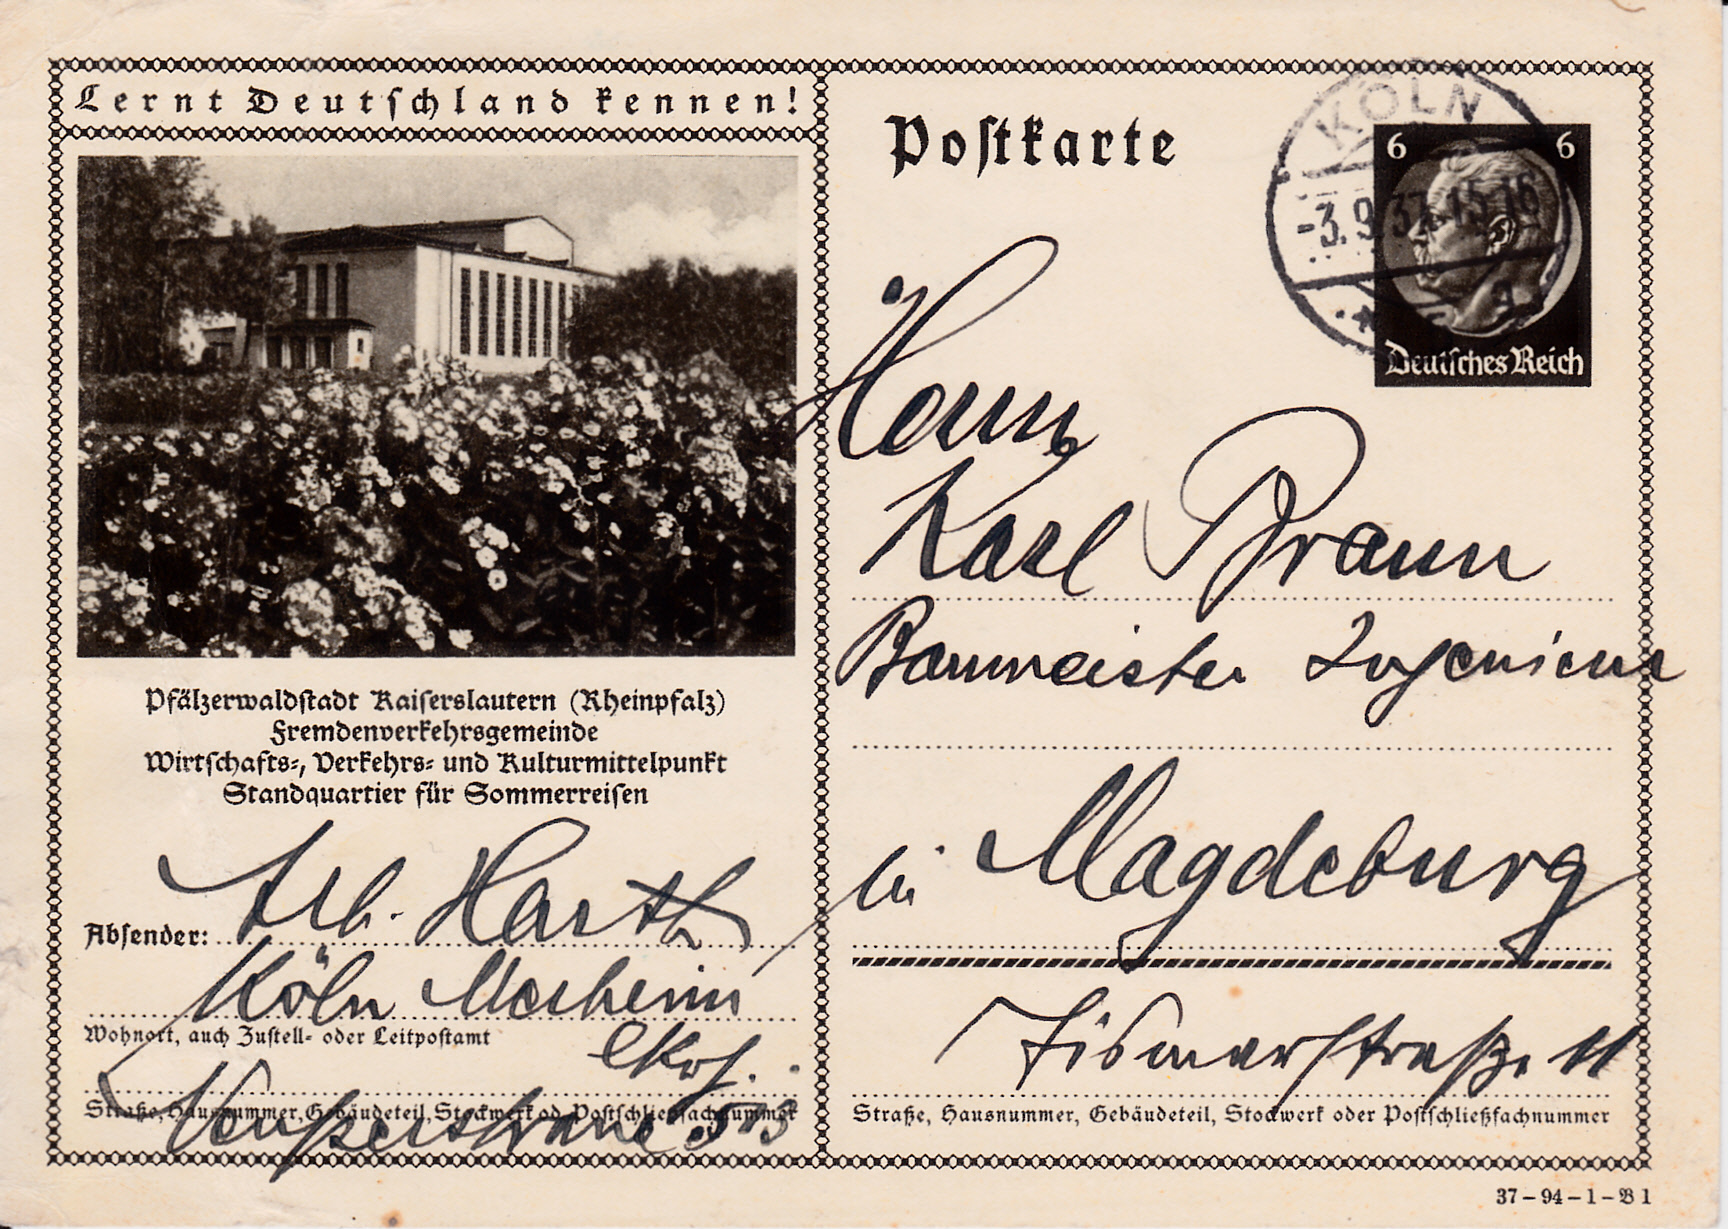 Lernt Deutschland kennen!
Pfälzerwaldstadt Kaiserslautern (Rheinpfalz)
Fremdenverkehrsgemeinde
Wirtschafts-, Verkehrs- und Kulturmittelpunkt
Standquartier für Sommerreisen
Absender: Harth
Köln Merheim
Wohnort, auch Zustell- oder Leitpostamt
Straße, Hausnummer, Gebäudeteil, Stockwerk od. Postschließfachnummer
Postkarte
KÖLN
-3.9.37.15-16
6 6
Deutsches Reich
Herrn
Karl Braun
Baumeister Ingenieur
in Magdeburg
11
Straße, Hausnummer, Gebäudeteil, Stockwerk oder Postschließfachnummer
37-94-1-B 1